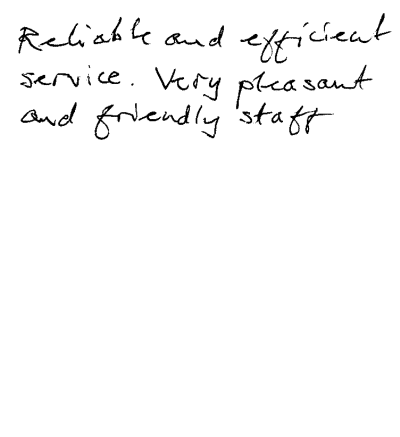 Reliable and efficient
service. Very pleasant
and friendly staff